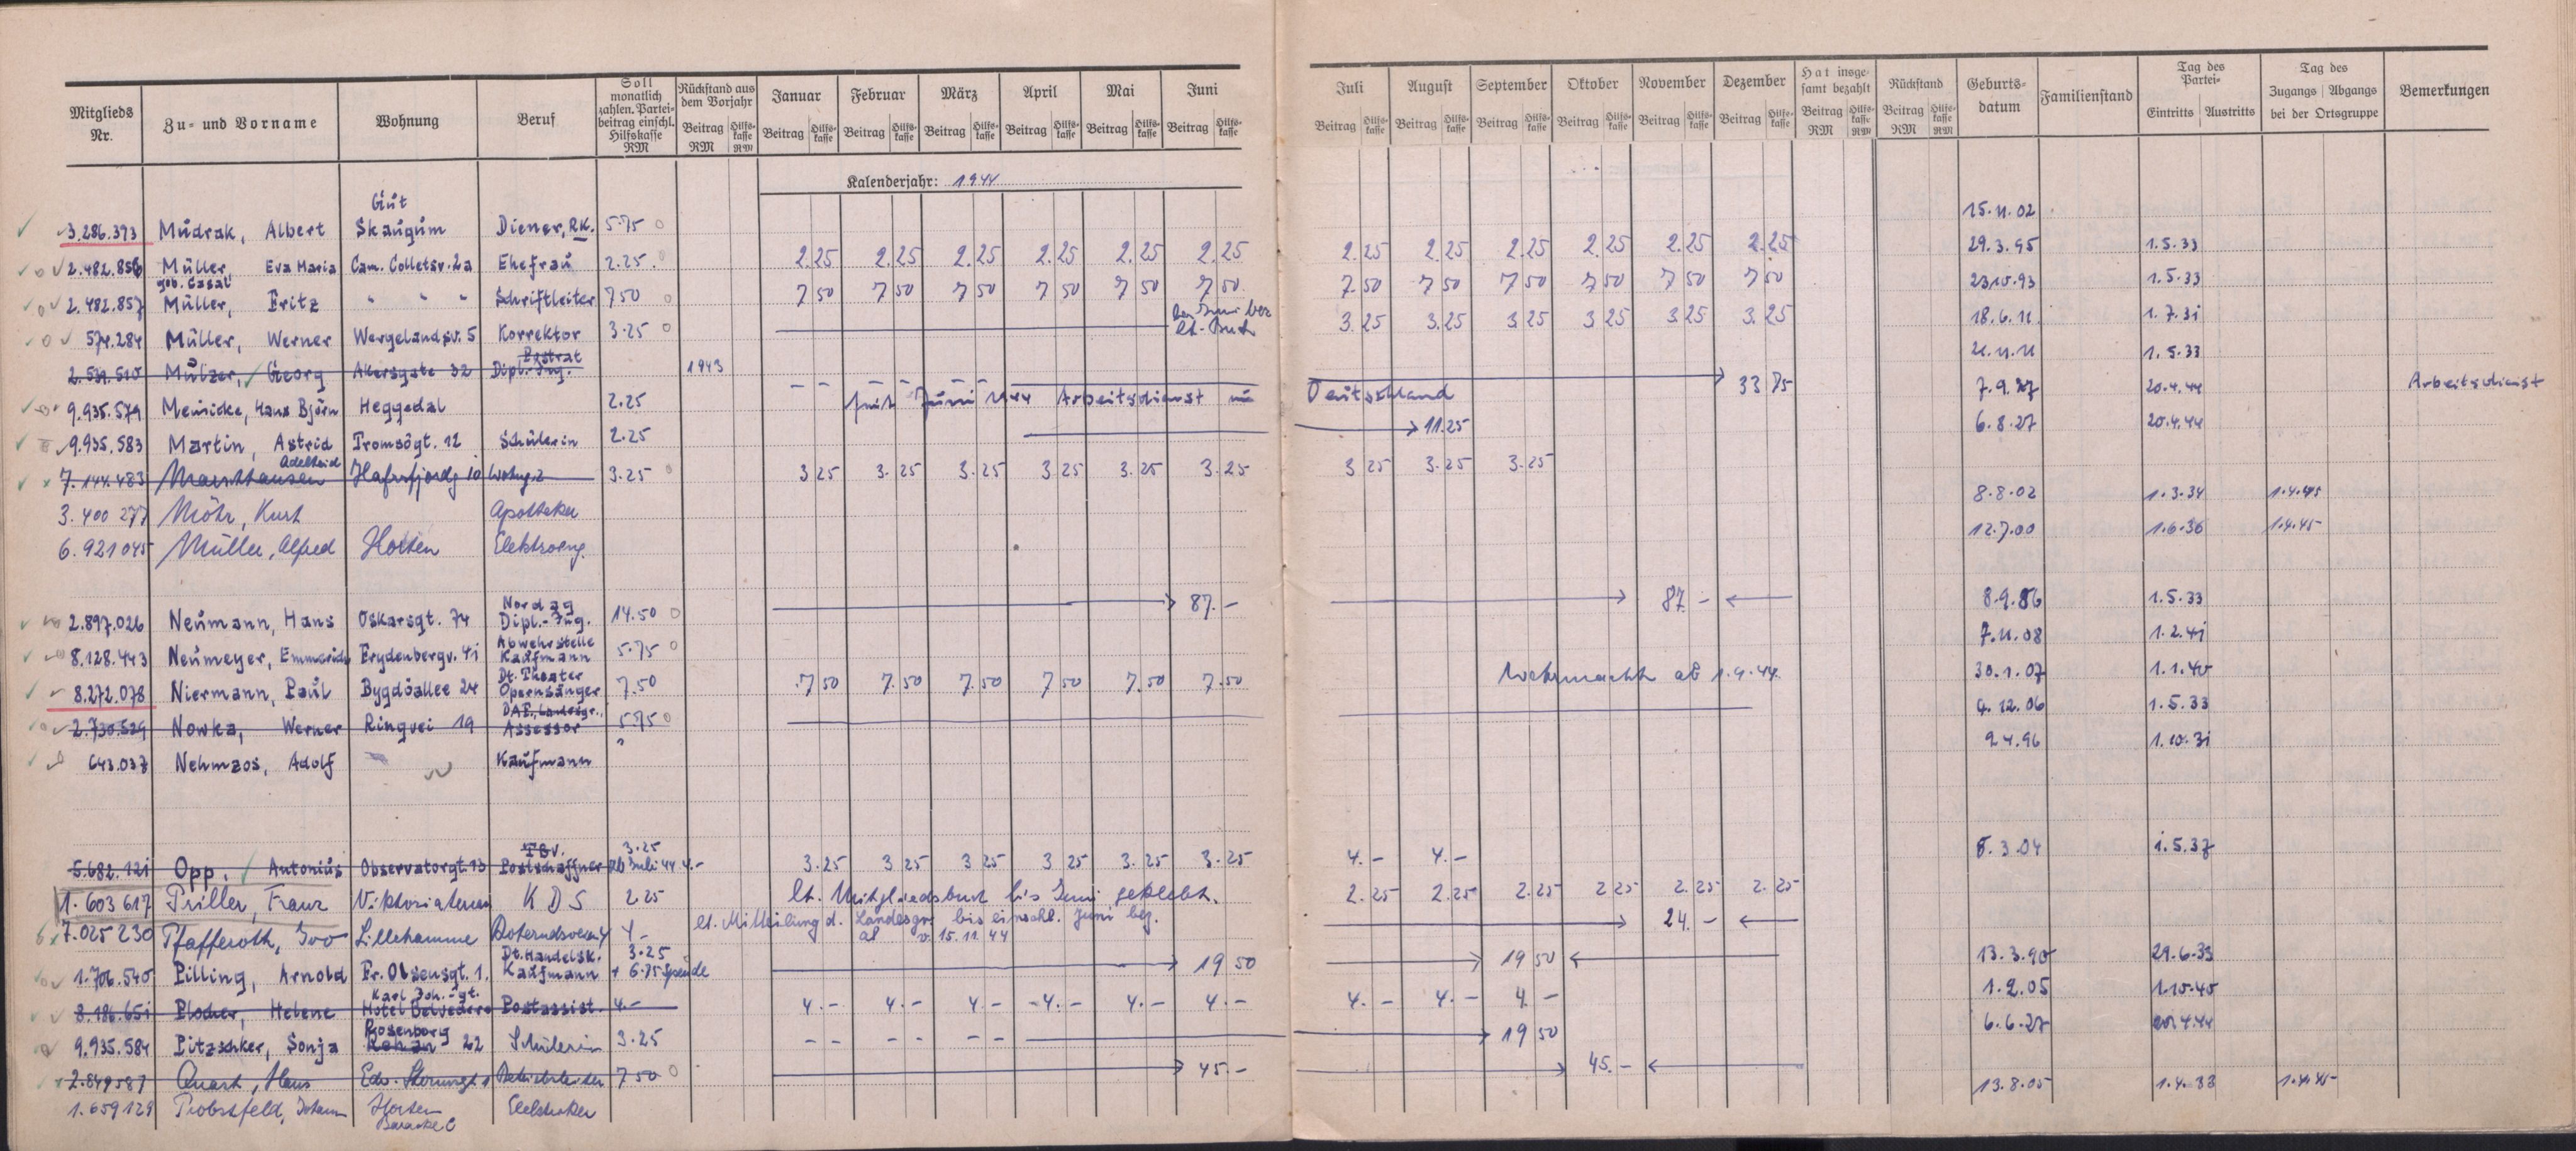 Mitglieds Nr. | Zu- und Vorname | Wohnung | Beruf | Soll monatlich zahlen. Partei-beitrag einschl. Hilfskasse RM | Rückstand aus dem Vorjahr Beitrag RM Hilfs-kasse RM | Januar Beitrag Hilfs-kasse | Februar Beitrag Hilfs-kasse | März Beitrag Hilfs-kasse | April Beitrag Hilfs-kasse | Mai Beitrag Hilfs-kasse | Juni Beitrag Hilfs-kasse | Juli Beitrag Hilfs-kasse | August Beitrag Hilfs-kasse | September Beitrag Hilfs-kasse | Oktober Beitrag Hilfs-kasse | November Beitrag Hilfs-kasse | Dezember Beitrag Hilfs-kasse | Hat insge-samt bezahlt Beitrag RM Hilfs-kasse RM | Rückstand Beitrag RM Hilfs-kasse RM | Geburts-datum | Familienstand | Tag des Partei- Eintritts Austritts | Tag des Zugangs Abgangs bei der Ortsgruppe | Bemerkungen
Kalenderjahr: 1944
3.286.393 Mudrak, Albert Gut Skaugum Diener, RK. 5.75 15.11.02
2.482.856 Müller, Eva Maria geb. Casal Cam. Colletsv. 2a Ehefrau 2.25 2.25 2.25 2.25 2.25 2.25 2.25 2.25 2.25 2.25 2.25 2.25 2.25 29.3.95 1.5.33
2.482.857 Müller, Fritz " " " Schriftleiter 7 50 7 50 7 50 7 50 7 50 7 50 7 50 7 50 7 50 7 50 7 50 7 50 7 50 23.10.93 1.5.33
574.284 Müller, Werner Wergelandsv. 5 Korrektor 3.25 lt. Buch 3.25 3.25 3.25 3 25 3.25 3.25 18.6.11 1.7.31
Mülzer, Georg Akersgate 32 Postrat Dipl.-Ing. 1943 1.5.33
9.935.579 Meinicke, Hans Björn Heggedal 2.25 seit Juni 1944 Arbeitsdienst in Deutschland 33 75 7.9.27 20.4.44 Arbeitsdienst
9.935.583 Martin, Astrid Tromsögt. 12 Schülerin 2.25 11.25 6.8.27 20.4.44
7.144.483 Adelheid 3.25 3 25 3.25 3.25 3 25 3.25 3.25 3 25 3.25 3.25
3.400 277 Möhr, Kurt Apotheker 8.8.02 1.3.34 1.4.45
6.921045 Müller, Alfred Horten Elektroing. 12.7.00 1.6.36 1.4.45
2.897.026 Neumann, Hans Oskarsgt. 74 Nordag Dipl.-Ing. 14.50 87.- 87.- 8.9.86 1.5.33
8.128.443 Neumeyer, Emmerich Frydenbergv. 41 Abwehrstelle Kaufmann 5.75 7.11.08 1.2.41
8.272.078 Niermann, Paul Bygdöallee 24 Dt. Theater Opernsänger 7.50 7 50 7.50 7.50 7 50 7.50 7.50 Wehrmacht ab 1.9.44. 30.1.07 1.1.40
Nowka, Werner Ringvei 19 Assessor 5.75 4.12.06 1.5.33
643.037 Nehmzos, Adolf Kaufmann 2.4.96 1.10.31
5.682.121 Opp, Antonius Observatorgt. 13 Postschaffner 3.25 ab Juli 44 4.- 3.25 3 25 3 25 3 25 3.25 3.25 4.- 4.- 8.3.04 1.5.37
1.603617 Priller, Franz Viktoriaterrasse K D S 2 25 lt. Mitgliedsbuch bis Juni geklebt. 2.25 2.25 2.25 2 25 2.25 2.25
7.025 230 Pfafferoth, Ivo Lillehammer 4.- lt. Mitteilung d. Landesgr. bis einschl. Juni bez. v. 15.11.44 24.-
1.706.540 Pilling, Arnold Fr. Olsensgt. 1. Dt. Handelsk. Kaufmann 3.25 + 6.75 Spende 19 50 19 50 13.3.90 29.6.33
8.186.651 Plocher, Helene Karl Joh.-gt. Hotel Belvedere Postassist. 4.- 4.- 4.- 4.- 4.- 4.- 4.- 4.- 4.- 4.- 1.2.05 1.10.40
9.935.584 Pitzschker, Sonja Rosenborg 22 Schülerin 3.25 19 50 6.6.27 20.4.44
2.849587 Quast, Hans Betriebsleiter 7 50 45.- 45.-
1.659129 Probstfeld, Johann Horten Baracke C Elektriker 13.8.05 1.4.33 1.4.45